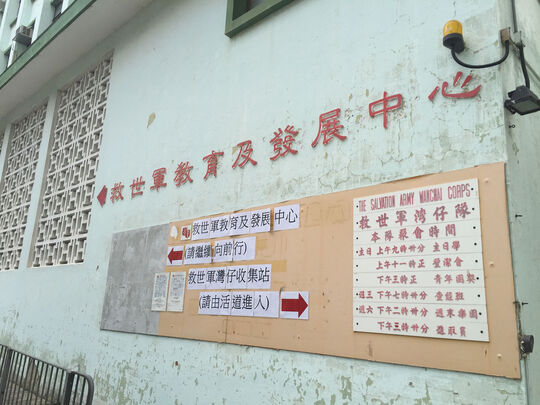 救世軍教育及發展中心
救世軍教育及發展中心
(請繼續向前行)
救世軍灣仔收集站
(請由活道進入)
THE SALVATION ARMY WANCHAI CORPS
救世軍灣仔隊
本隊聚會時間
主日 上午九時卅分 主日學
上午十一時正 聖潔會
下午三時正 青年團契
週三 下午七時卅分 查經班
週六 下午二時卅分 週末樂園
下午三時卅分